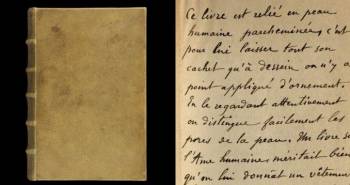 Ce livre est relié en peau
humaine parcheminée, c'est
pour lui laisser tout son
cachet qu'à dessein on n'y a
point appliqué d'ornement.
En le regardant attentivement
on distingue facilement les
pores de la peau. Un livre s
l'Ame humaine méritait bien
qu'on lui donnât un vêtemen